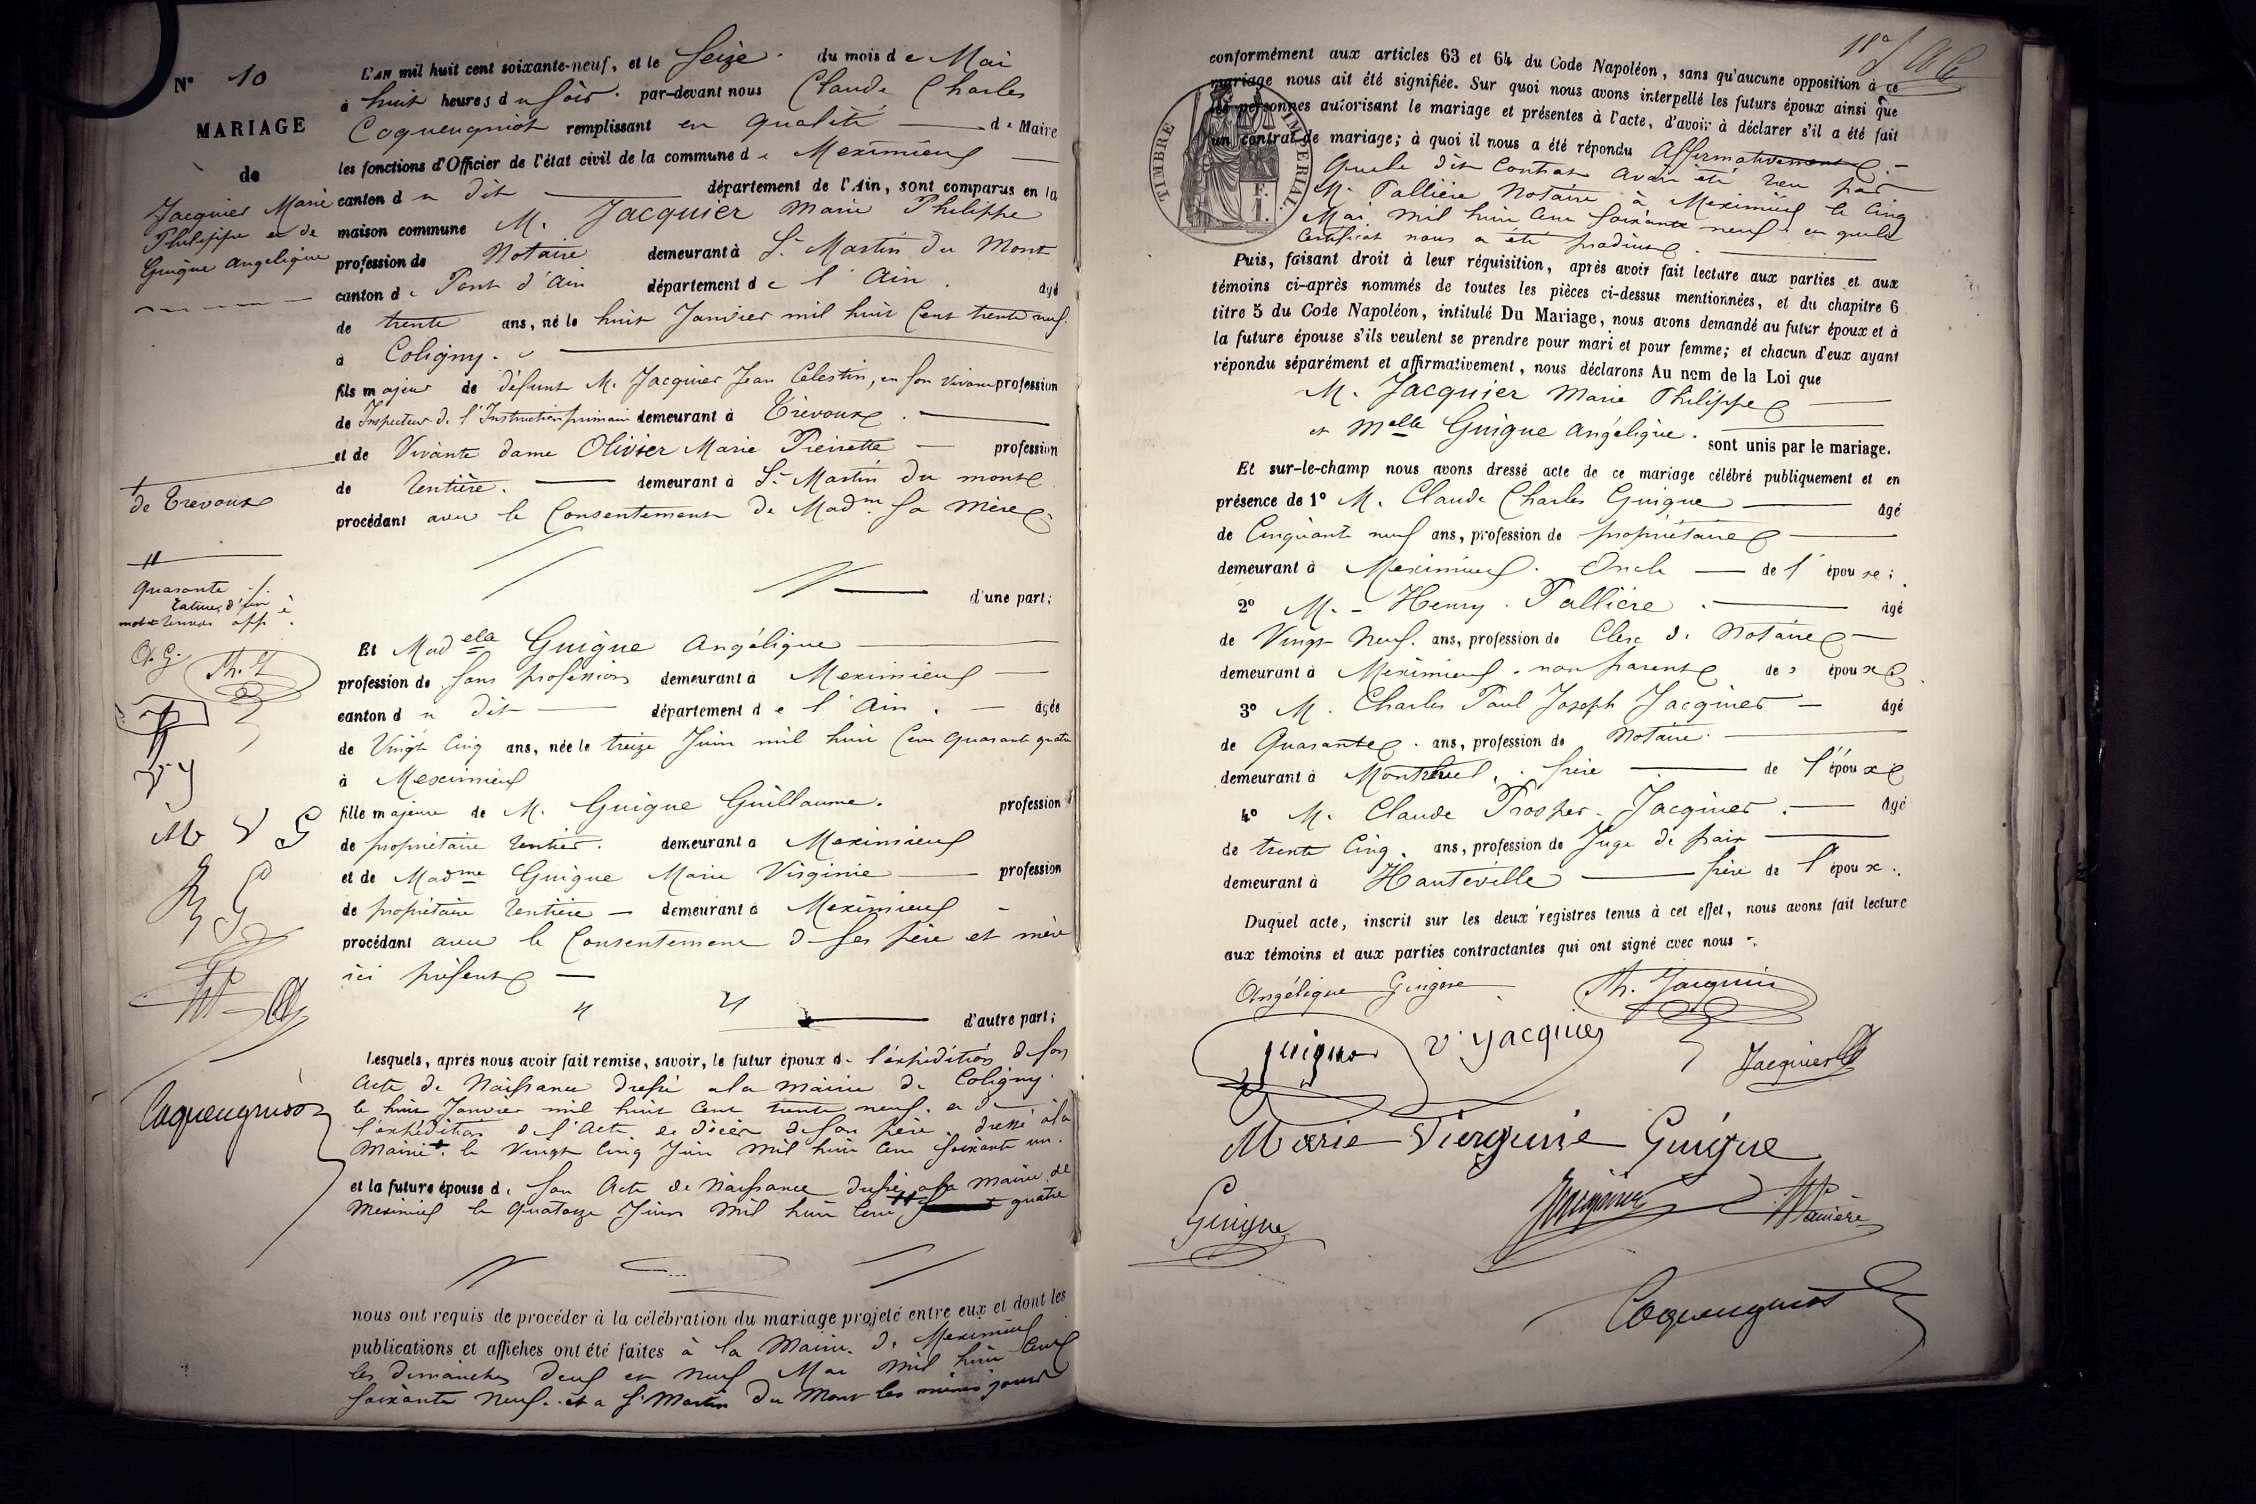 N° 10
MARIAGE
de
Jacquier Marie
Philippe et de
Guigue Angelique
L'an mil huit cent soixante-neuf, et le Seize du mois de Mai
à huit heures du Soir par-devant nous Claude Charles
Coqueugniot remplissant en qualité de Maire
les fonctions d'Officier de l'état civil de la commune de Meximieux
canton du dit département de l'Ain, sont comparus en la
maison commune M. Jacquier Marie Philippe
profession de Notaire demeurant à St Martin du Mont
canton de Pont d'Ain département de l'Ain. âgé
de trente ans, né le huit Janvier mil huit Cent trente neuf.
à Coligny.
fils majeur de défunt M. Jacquier Jean Célestin, en son vivant profession
de Inspecteur de l'Instruction primaire demeurant à Trévoux.
et de Vivante dame Olivier Marie Pierrette profession
de rentière. demeurant à St Martin du mont
procédant avec le Consentement de Madme Sa Mère
de Trevoux
quarante
d'une part;
Et Madelle Guigue Angélique
profession de Sans profession demeurant à Meximieux
canton du dit département de l'Ain. âgée
de Vingt Cinq ans, née le treize Juin mil huit Cent Quarante quatre
à Meximieux
fille majeure de M. Guigue Guillaume. profession
de propriétaire rentier. demeurant à Meximieux
et de Madme Guigue Marie Virginie profession
de propriétaire rentière demeurant à Meximieux
procédant avec le Consentement de Ses père et mère
ici présents
d'autre part;
Lesquels, après nous avoir fait remise, savoir, le futur époux de l'expédition de son
Acte de Naissance dressé a la mairie de Coligny.
le huit Janvier mil huit cent trente neuf. et de
l'expédition de l'Acte de décès de son père dressé à la
Mairie le Vingt Cinq Juin mil huit cent soixante un.
et la future épouse de Son Acte de Naissance dressé a la mairie de
Meximieux le quatorze Juin mil huit cent quatre
nous ont requis de procéder à la célébration du mariage projeté entre eux et dont les
publications et affiches ont été faites à la Mairie de Meximieux
les dimanches deux et neuf Mai mil huit Cent
soixante neuf. et a St Martin du Mont les mêmes jours
A. G.
Ph. J
V J
M V G
Coqueugniot
conformément aux articles 63 et 64 du Code Napoléon, sans qu'aucune opposition à ce
mariage nous ait été signifiée. Sur quoi nous avons interpellé les futurs époux ainsi que
les personnes autorisant le mariage et présentes à l'acte, d'avoir à déclarer s'il a été fait
un contrat de mariage; à quoi il nous a été répondu Affirmativement
que le dit Contrat avait été reçu par
M. Pallière Notaire à Meximieux le cinq
Mai mil huit cent soixante neuf. en quel
certificat nous a été produit
TIMBRE IMPERIAL
Puis, faisant droit à leur réquisition, après avoir fait lecture aux parties et aux
témoins ci-après nommés de toutes les pièces ci-dessus mentionnées, et du chapitre 6
titre 5 du Code Napoléon, intitulé Du Mariage, nous avons demandé au futur époux et à
la future épouse s'ils veulent se prendre pour mari et pour femme; et chacun d'eux ayant
répondu séparément et affirmativement, nous déclarons Au nom de la Loi que
M. Jacquier Marie Philippe
et Melle Guigue Angélique. sont unis par le mariage.
Et sur-le-champ nous avons dressé acte de ce mariage célébré publiquement et en
présence de 1° M. Claude Charles Guigue âgé
de Cinquante neuf ans, profession de propriétaire
demeurant à Meximieux. Oncle de l'épouse;
2° M. Henry Pallière âgé
de Vingt Neuf. ans, profession de Clerc de Notaire
demeurant à Meximieux. non parent des époux
3° M. Charles Paul Joseph Jacquier âgé
de Quarante. ans, profession de Notaire.
demeurant à Montluel. frère de l'époux
4° M. Claude Prosper. Jacquier. âgé
de trente Cinq. ans, profession de Juge de paix
demeurant à Hauteville frère de l'époux.
Duquel acte, inscrit sur les deux registres tenus à cet effet, nous avons fait lecture
aux témoins et aux parties contractantes qui ont signé avec nous
Angélique Guigue Ph. Jacquier
guigue V. Jacquier Jacquier
Marie Vierginie Guigue
Guigue Jacquier Pallière
Coqueugniot